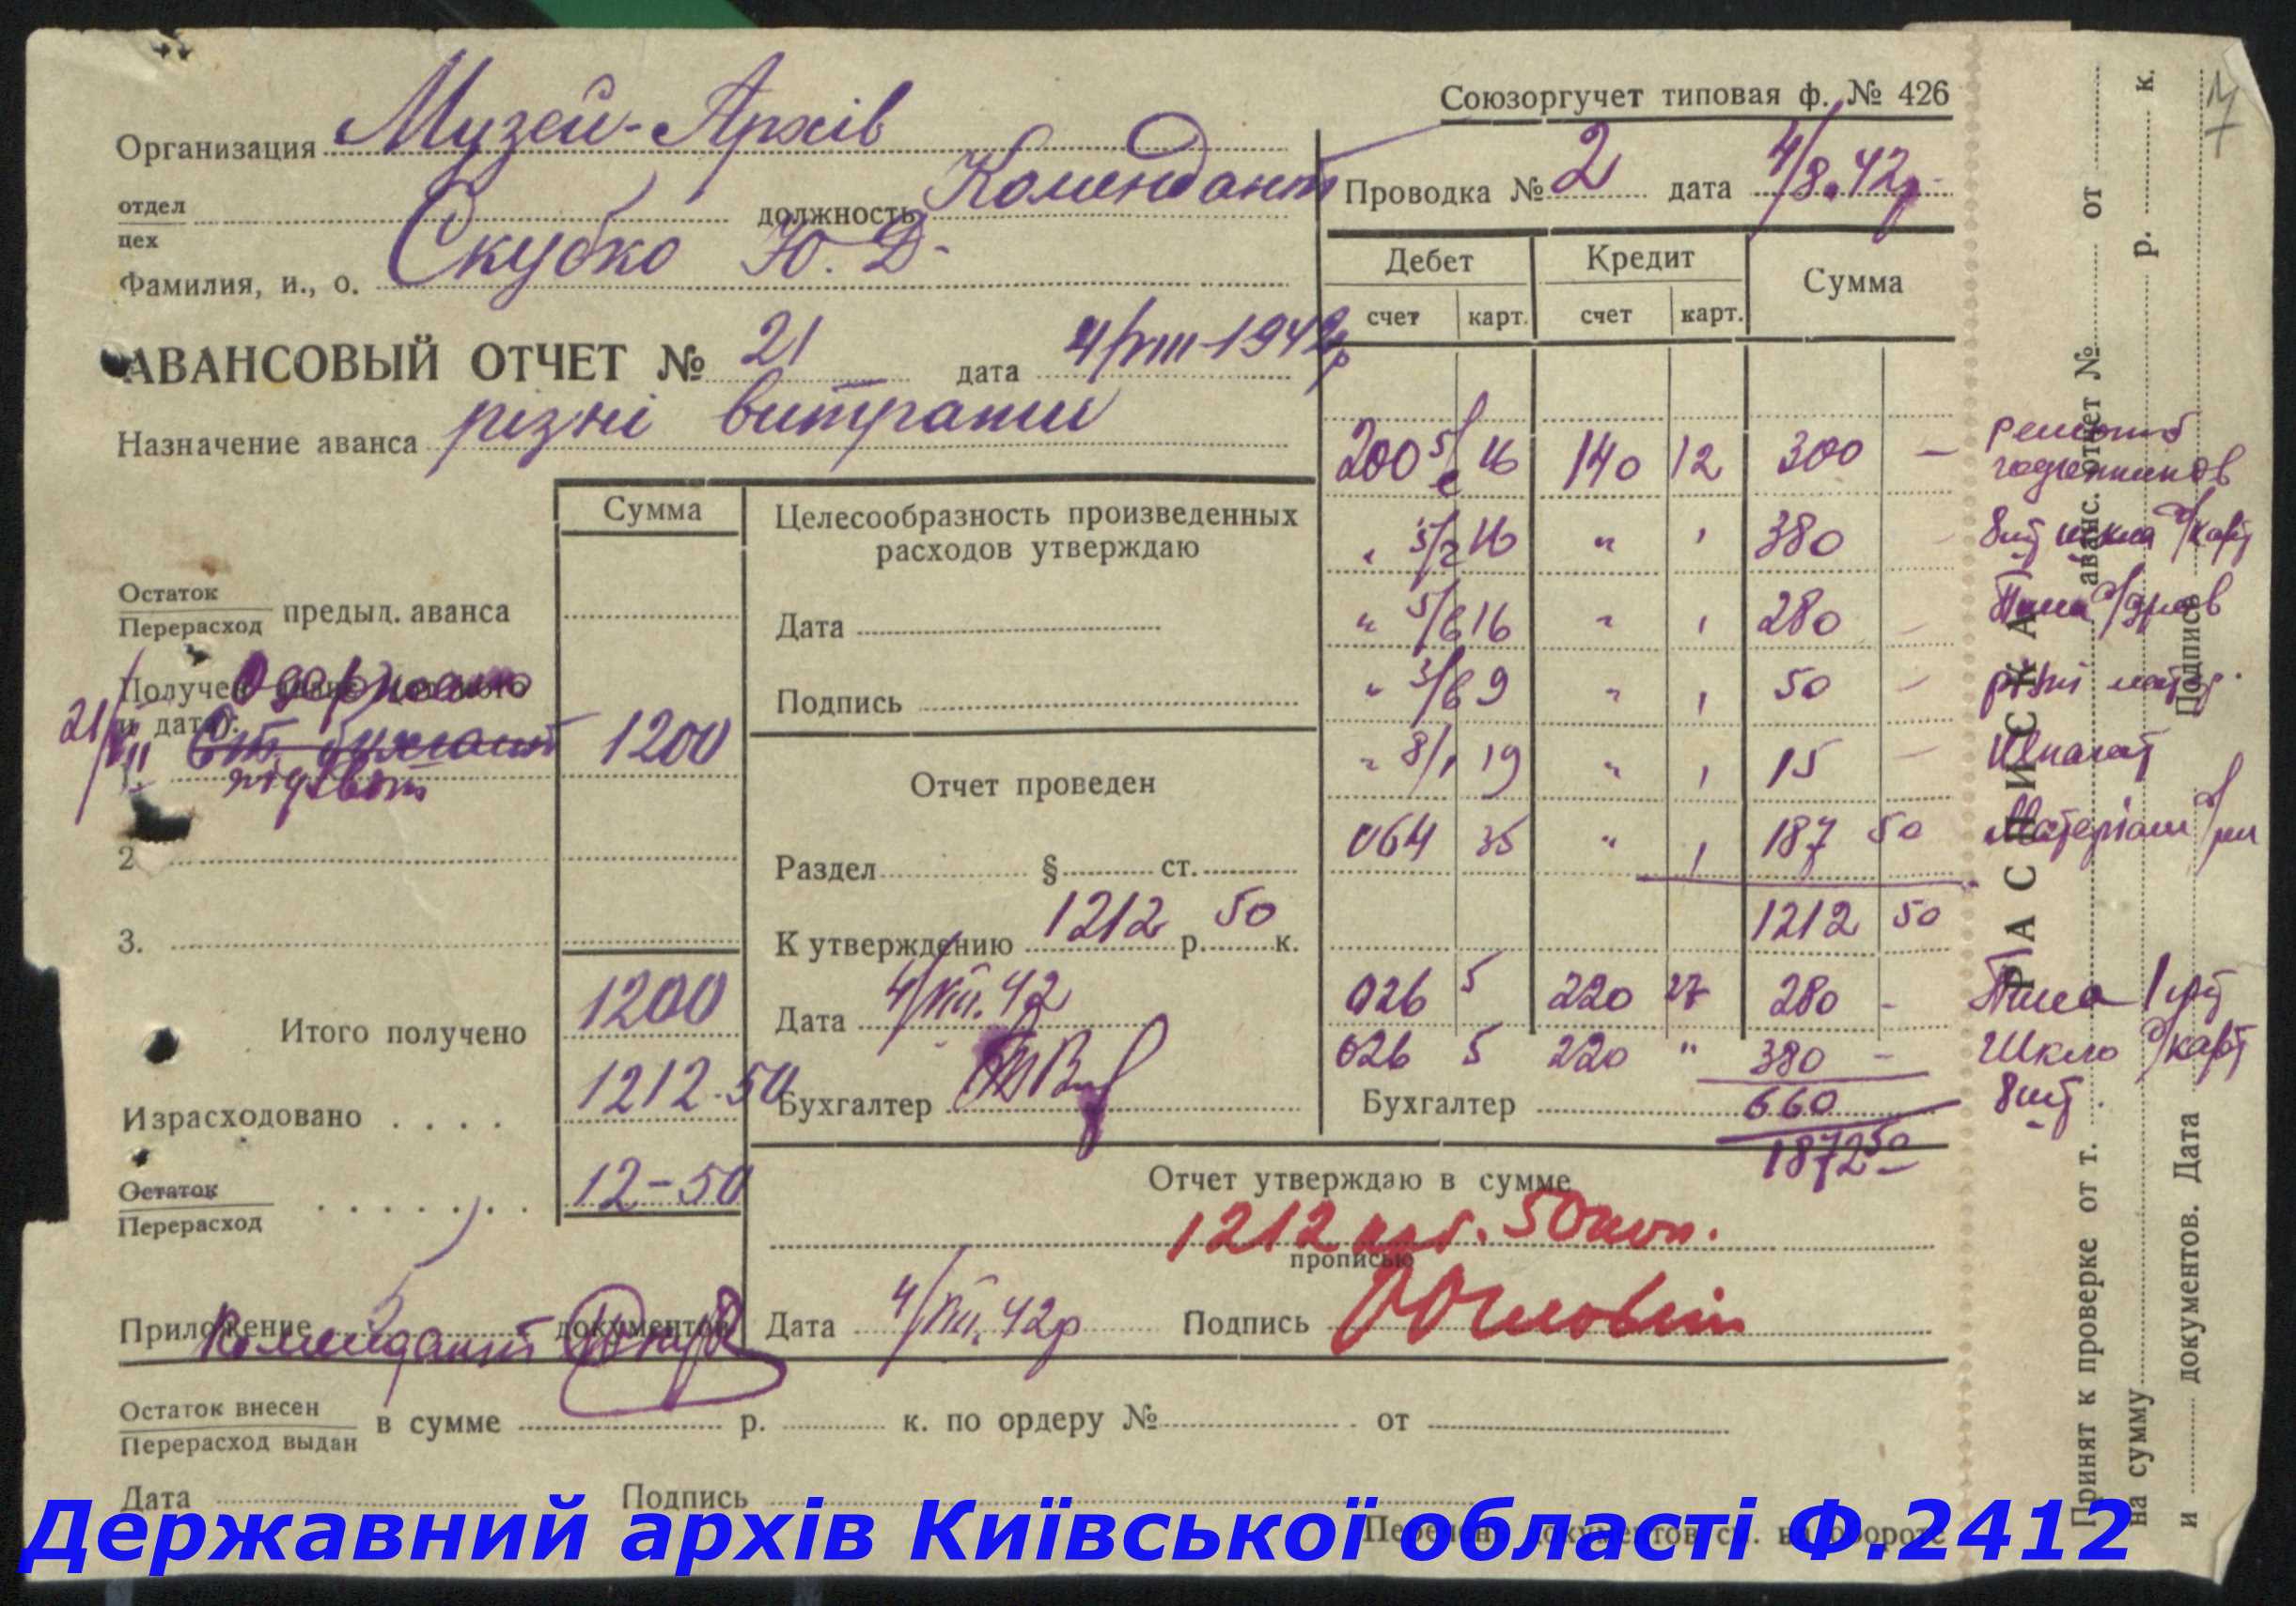 Союзоргучет типовая ф. № 426
Организация Музей-Архів
отдел
цех
должность Комендант
Фамилия, и., о. Скубко Ю. Д.
Проводка № 2 дата 4/8.42р
АВАНСОВЫЙ ОТЧЕТ № 21 дата 4/VIII-1942р
Назначение аванса різні витрати
Дебет Кредит Сумма
счет карт. счет карт.
200 5/е 16 140 12 300 —
" 5/г 16 " " 380 —
" 5/в 16 " " 280 —
" 3/в 9 " " 50 —
" 8/1 19 " " 15 —
064 35 " " 187 50
1212 50
026 5 220 27 280 -
026 5 220 " 380 -
660
1872 50
Бухгалтер
ремонт
8 шт шкла
різні матер.
Шпагат
Матеріали
Шкло
8 шт.
Сумма
Остаток
Перерасход
предыд. аванса
Получен
и дата):
21/VII
1. 1200
2
3.
Итого получено 1200
Израсходовано . . . . 1212-50
Остаток
Перерасход
. . . . . . . 12-50
Приложение 5 документов
Комендант
Целесообразность произведенных
расходов утверждаю
Дата
Подпись
Отчет проведен
Раздел § ст.
К утверждению 1212 р. 50 к.
Дата 4/VIII.42
Бухгалтер
Отчет утверждаю в сумме
1212 крб. 50 коп.
прописью
Дата 4/VIII.42р Подпись
Остаток внесен
Перерасход выдан
в сумме р. к. по ордеру № от
Дата Подпись
Перечень документов см. на обороте
РАСПИСКА
Принят к проверке от т. аванс. отчет № от
на сумму р. к.
и документов. Дата Подпись
Державний архів Київської області Ф.2412